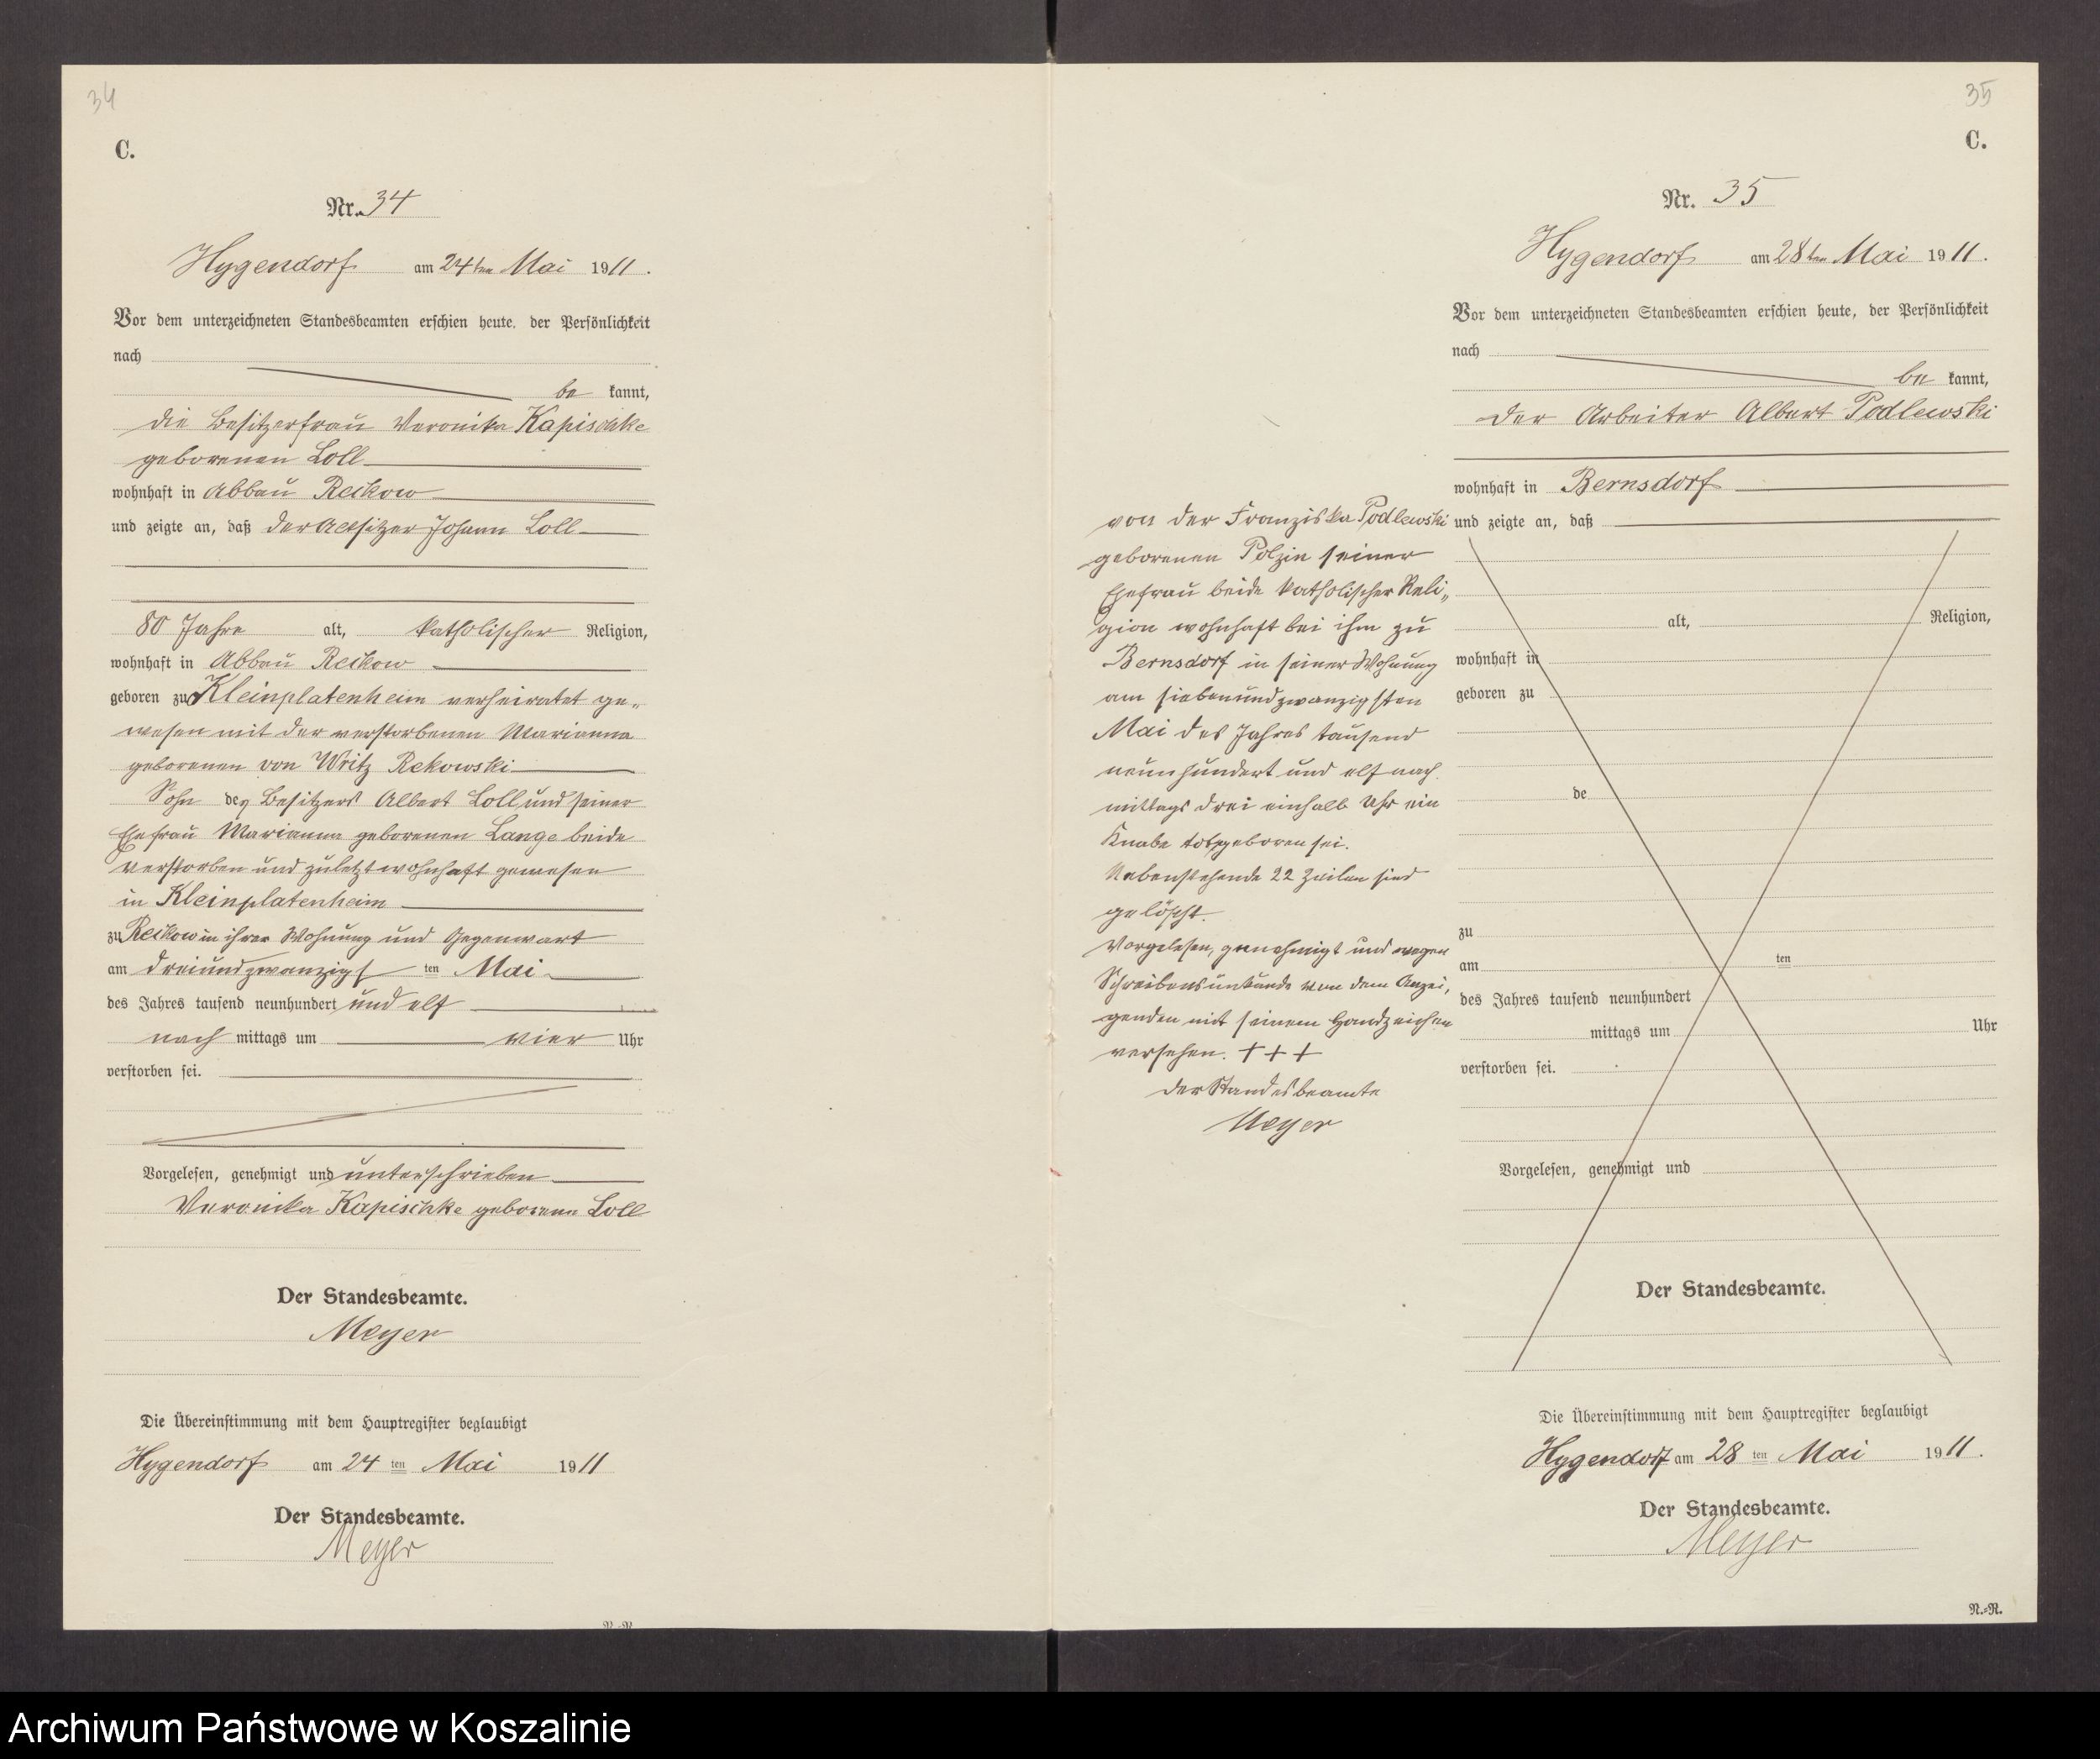 34
C.
Nr. 34
Hygendorf am 24ten Mai 1911.
Vor dem unterzeichneten Standesbeamten erschien heute, der Persönlichkeit
nach
be kannt,
die Besitzerfrau Veronika Kapischke
geborenen Loll
wohnhaft in Abbau Reckow
und zeigte an, daß der Altsitzer Johann Loll
80 Jahre alt, katholischer Religion,
wohnhaft in Abbau Reckow
geboren zu Kleinplatenheim verheiratet ge-
wesen mit der verstorbenen Marianna
geborenen von Writz Rekowski
Sohn des Besitzers Albert Loll und seiner
Ehefrau Marianna geborenen Lange beide
verstorben und zuletzt wohnhaft gewesen
in Kleinplatenheim
zu Reckow in ihrer Wohnung und Gegenwart
am dreiundzwanzigsten Mai
des Jahres tausend neunhundert und elf
nach mittags um vier Uhr
verstorben sei.
Vorgelesen, genehmigt und unterschrieben
Veronika Kapischke geborene Loll
Der Standesbeamte.
Meyer
Die Übereinstimmung mit dem Hauptregister beglaubigt
Hygendorf am 24 ten Mai 1911
Der Standesbeamte.
Meyer
35
C.
Nr. 35
Hygendorf am 28ten Mai 1911.
Vor dem unterzeichneten Standesbeamten erschien heute, der Persönlichkeit
nach
be kannt,
der Arbeiter Albert Podlewski
wohnhaft in Bernsdorf
und zeigte an, daß
von der Franziska Podlewski
geborenen Polzin seiner
Ehefrau beide katholischer Reli-
gion wohnhaft bei ihm zu
Bernsdorf in seiner Wohnung
am siebenundzwanzigsten
Mai des Jahres tausend
neunhundert und elf nach
mittags drei einhalb Uhr ein
Knabe totgeboren sei.
Nebenstehende 22 Zeilen sind
gelöscht.
Vorgelesen, genehmigt und wegen
Schreibensunkunde von dem Anzei-
genden mit seinem Handzeichen
versehen. + + +
Der Standesbeamte
Meyer
alt, Religion,
wohnhaft in
geboren zu
de
zu
am ten
des Jahres tausend neunhundert
mittags um Uhr
verstorben sei.
Vorgelesen, genehmigt und
Der Standesbeamte.
Die Übereinstimmung mit dem Hauptregister beglaubigt
Hygendorf am 28 ten Mai 1911.
Der Standesbeamte.
Meyer
N.-N.
Archiwum Państwowe w Koszalinie